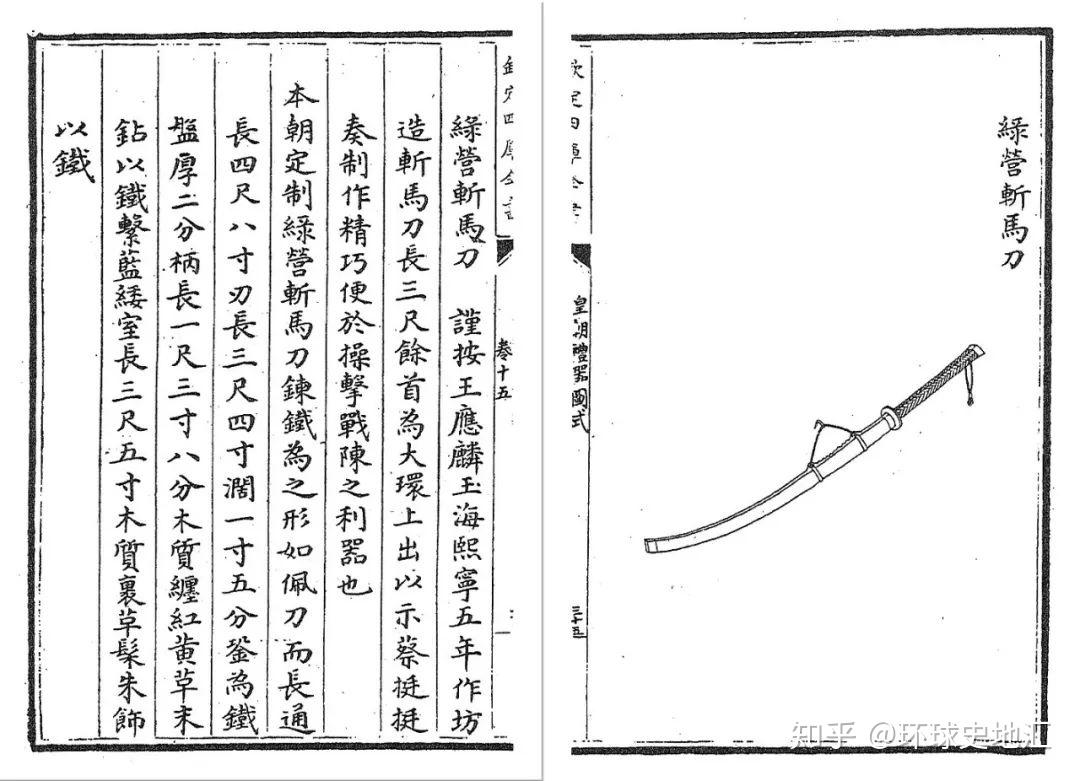 綠營斬馬刀
欽定四庫全書
皇朝禮器圖式
三十五
欽定四庫全書
卷十五
綠營斬馬刀 謹按王應麟玉海熙寧五年作坊
造斬馬刀長三尺餘首為大環上出以示蔡挺挺
奏制作精巧便於操擊戰陳之利器也
本朝定制綠營斬馬刀鍊鐵為之形如佩刀而長通
長四尺八寸刃長三尺四寸濶一寸五分銎為鐵
盤厚二分柄長一尺三寸八分木質纏紅黃草末
鉆以鐵繫藍緌室長三尺五寸木質裹草髹朱飾
以鐵
知乎 @环球史地汇